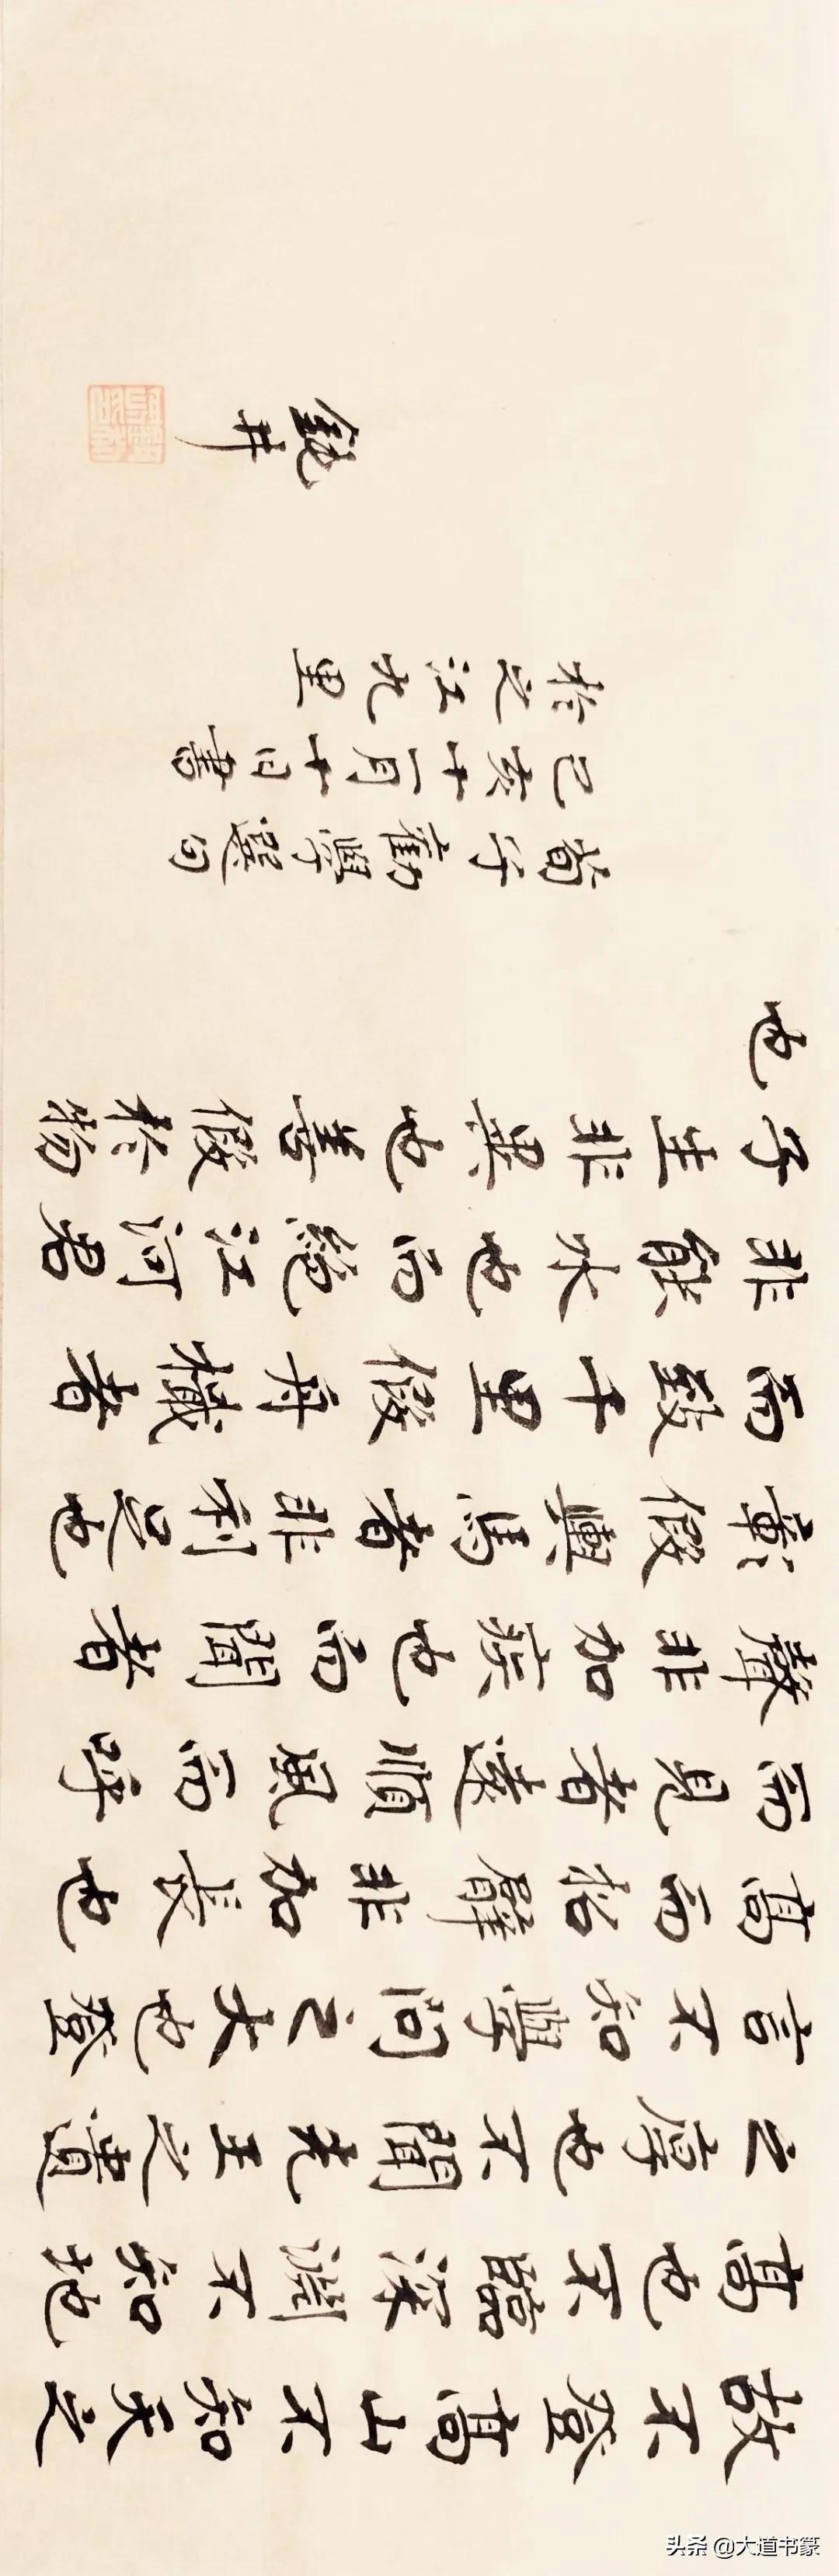 故不登高山不知天之
高也不臨深淵不知地
之厚也不聞先王之遺
言不知學問之大也登
高而招臂非加長也
而見者遠順風而呼
聲非加疾也而聞者
彰假輿馬者非利足也
而致千里假舟檝者
非能水也而絕江河君
子生非異也善假於物
也
荀子勸學選句
己亥十一月十日書
於之江九里
头条 @大道书篆